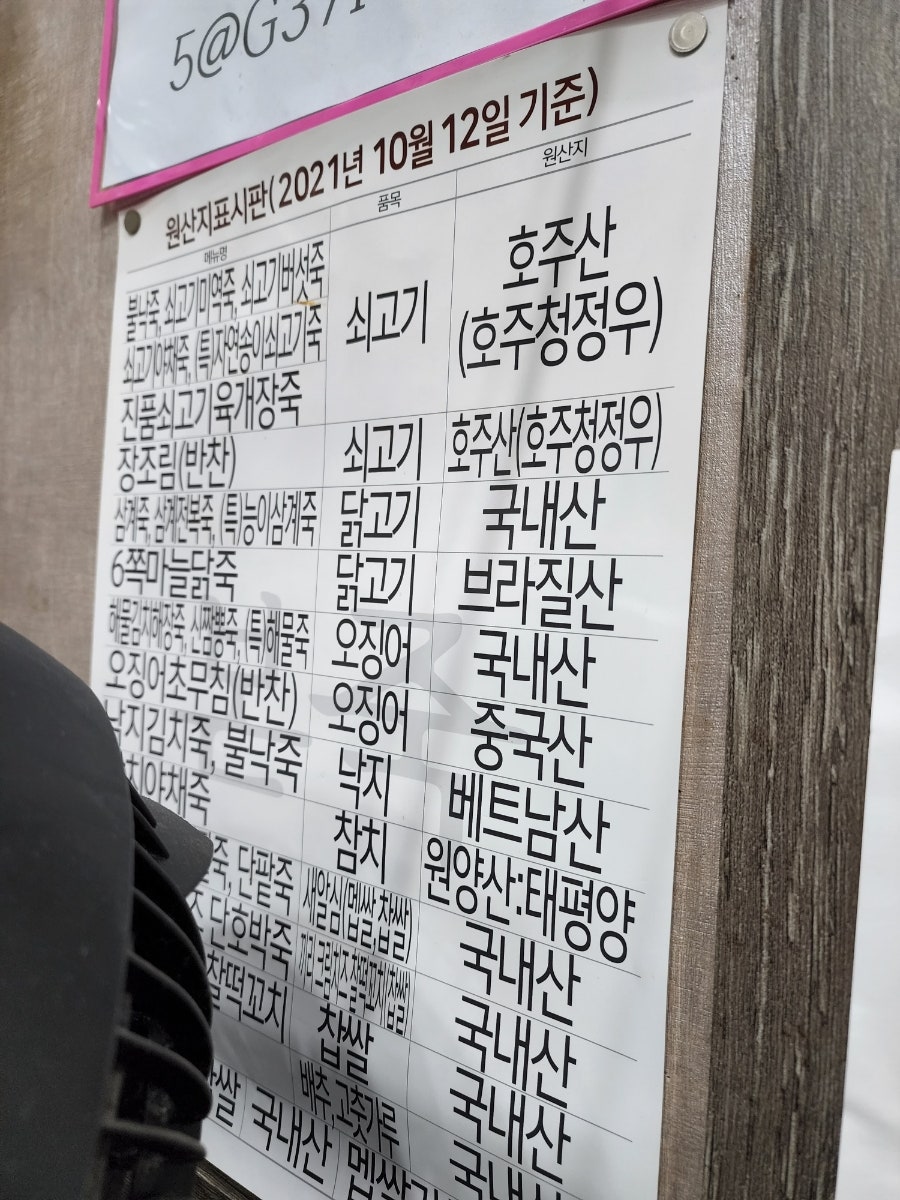 5@G37
원산지표시판(2021년 10월 12일 기준)
메뉴명 품목 원산지
불낙죽, 쇠고기미역죽, 쇠고기버섯죽
쇠고기야채죽, (특)자연송이쇠고기죽
진품쇠고기육개장죽
쇠고기
호주산
(호주청정우)
장조림(반찬) 쇠고기 호주산(호주청정우)
삼계죽, 삼계전복죽, (특)능이삼계죽 닭고기 국내산
6쪽마늘닭죽 닭고기 브라질산
해물김치해장죽, 신짬뽕죽, (특)해물죽 오징어 국내산
오징어초무침(반찬) 오징어 중국산
낙지김치죽, 불낙죽 낙지 베트남산
치야채죽 참치 원양산:태평양
죽, 단팥죽 새알심(멥쌀,찹쌀) 국내산
단호박죽 국내산
찰떡꼬치 찹쌀 국내산
배추,고춧가루 국내산
쌀 국내산